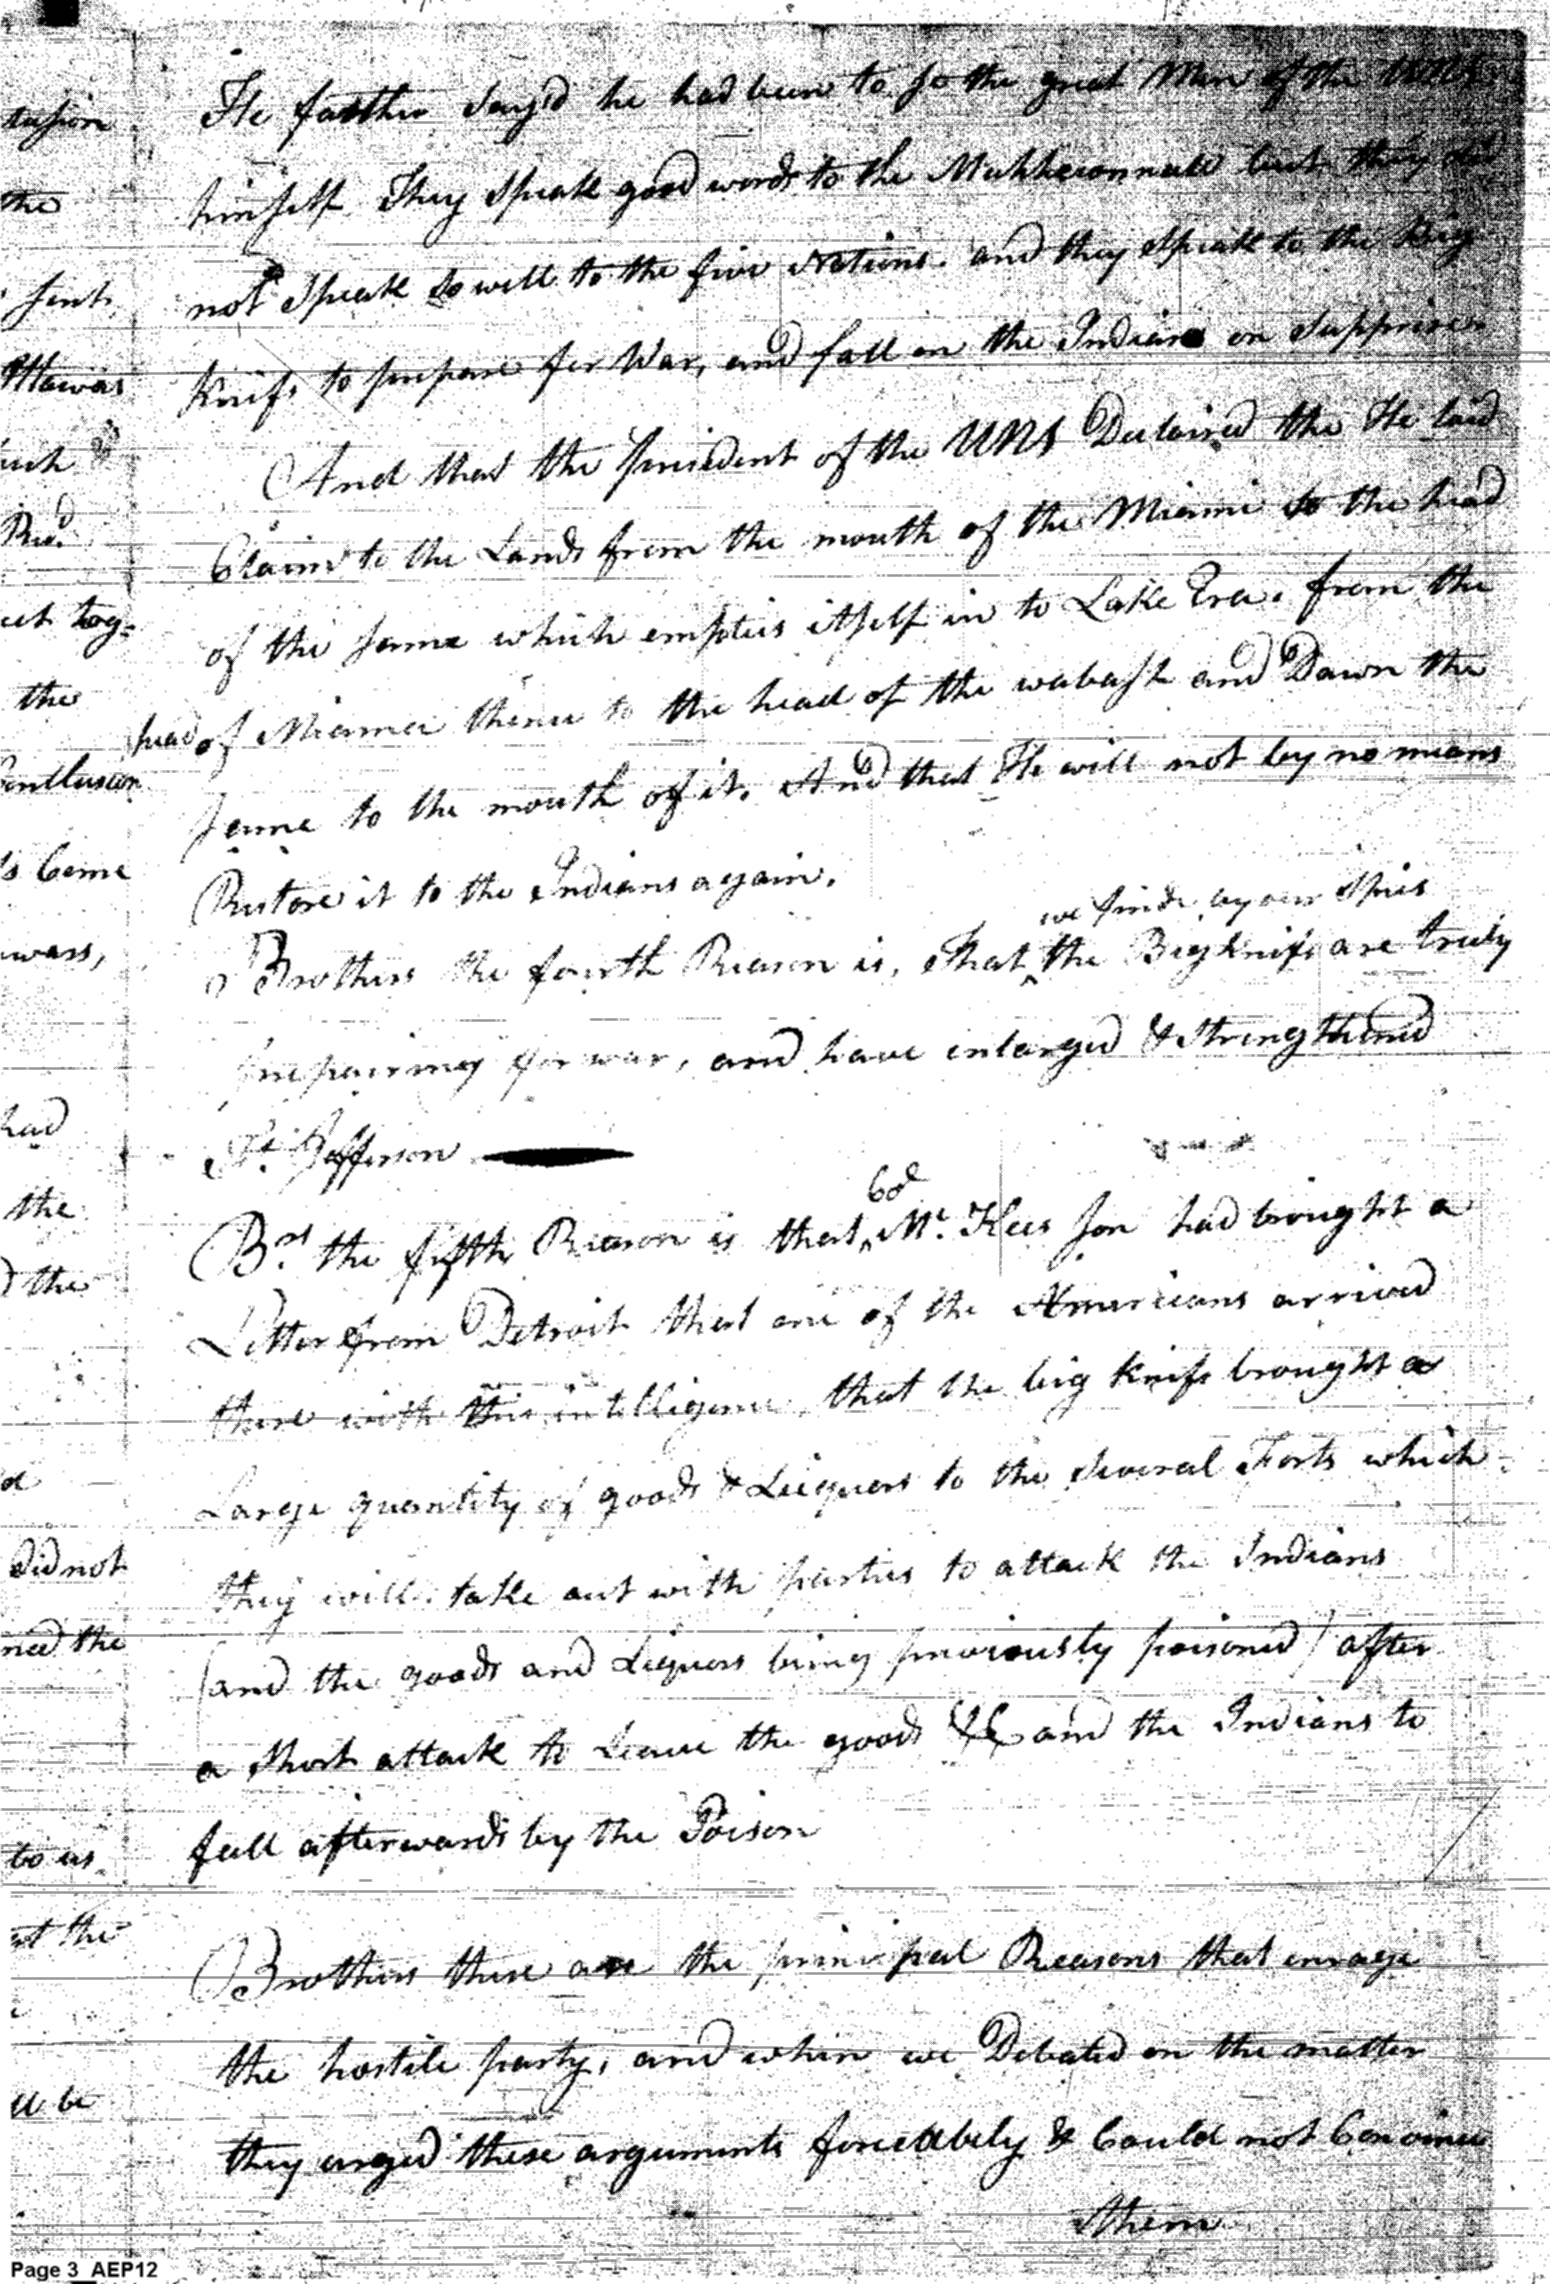 He farther say'd he had been to so the great Man of the UNS
himself. They Speak good words to the Muhheconnuk but they did
not Speak so well to the five Nations. and they Speak to the Big
Knifs to prepare for War, and fall on the Indians on Supprise
And that the president of the UNS Declaired the He laid
Claim to the Lands from the mouth of the Miamie to the head
of the same which empties itself in to Lake Era. from the
head of Miamee thence to the head of the wabash and Down the
same to the mouth of it. And that He will not by no means
Restore it to the Indians again.
we finde by our Spies
Brothers the fourth Reason is, That ^ the Big knifs are truly
prepairing for war, and have enlarged & Strengthened
Ft. Jefferson
Col
Brs. the fifth Reason is that ^ Mc. Kees son had brought a
Letter from Detroit that one of the Americans arrived
there with this intelligence, that the big Knifs brought a
Large quantity of goods & Liequors to the several Forts which
they will take out with parties to attack the Indians
(and the goods and Liquors being previously poisoned) after
a Short attack to Leave the goods &C and the Indians to
fall afterwards by the Poison
Brothers these are the principal Reasons that enrage
the hostile party, and when we Debated on the matter
they urged these arguments forceably & Could not Convince
them
the
sent
Ottawas
such
Recd
the
Conclusion
Come
had
the
the
Did not
the
to us
the
be
Page 3 AEP12